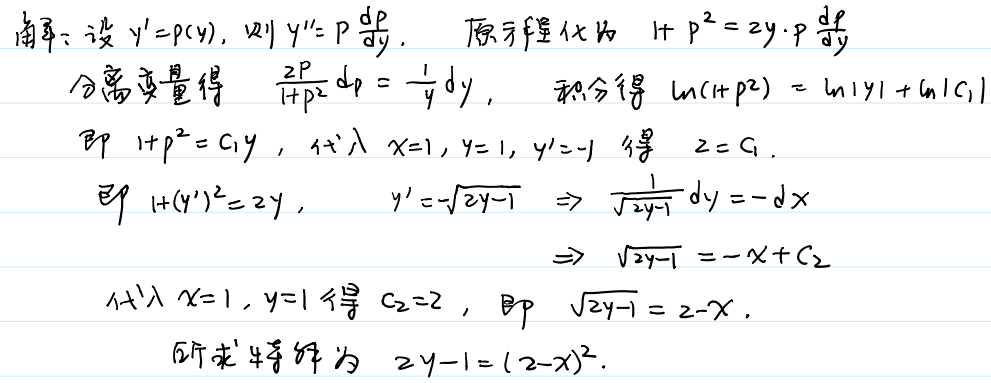 解：设 y'=p(y), 则 y''=p dp/dy. 原方程化为 1+p²=2y·p dp/dy
分离变量得 2p/(1+p²) dp = 1/y dy, 积分得 ln(1+p²) = ln|y|+ln|C₁|
即 1+p²=C₁y, 代入 x=1, y=1, y'=-1 得 2=C₁.
即 1+(y')²=2y, y'=-√(2y-1) ⇒ 1/√(2y-1) dy=-dx
⇒ √(2y-1) = -x+C₂
代入 x=1, y=1 得 C₂=2, 即 √(2y-1) = 2-x.
所求特解为 2y-1=(2-x)².